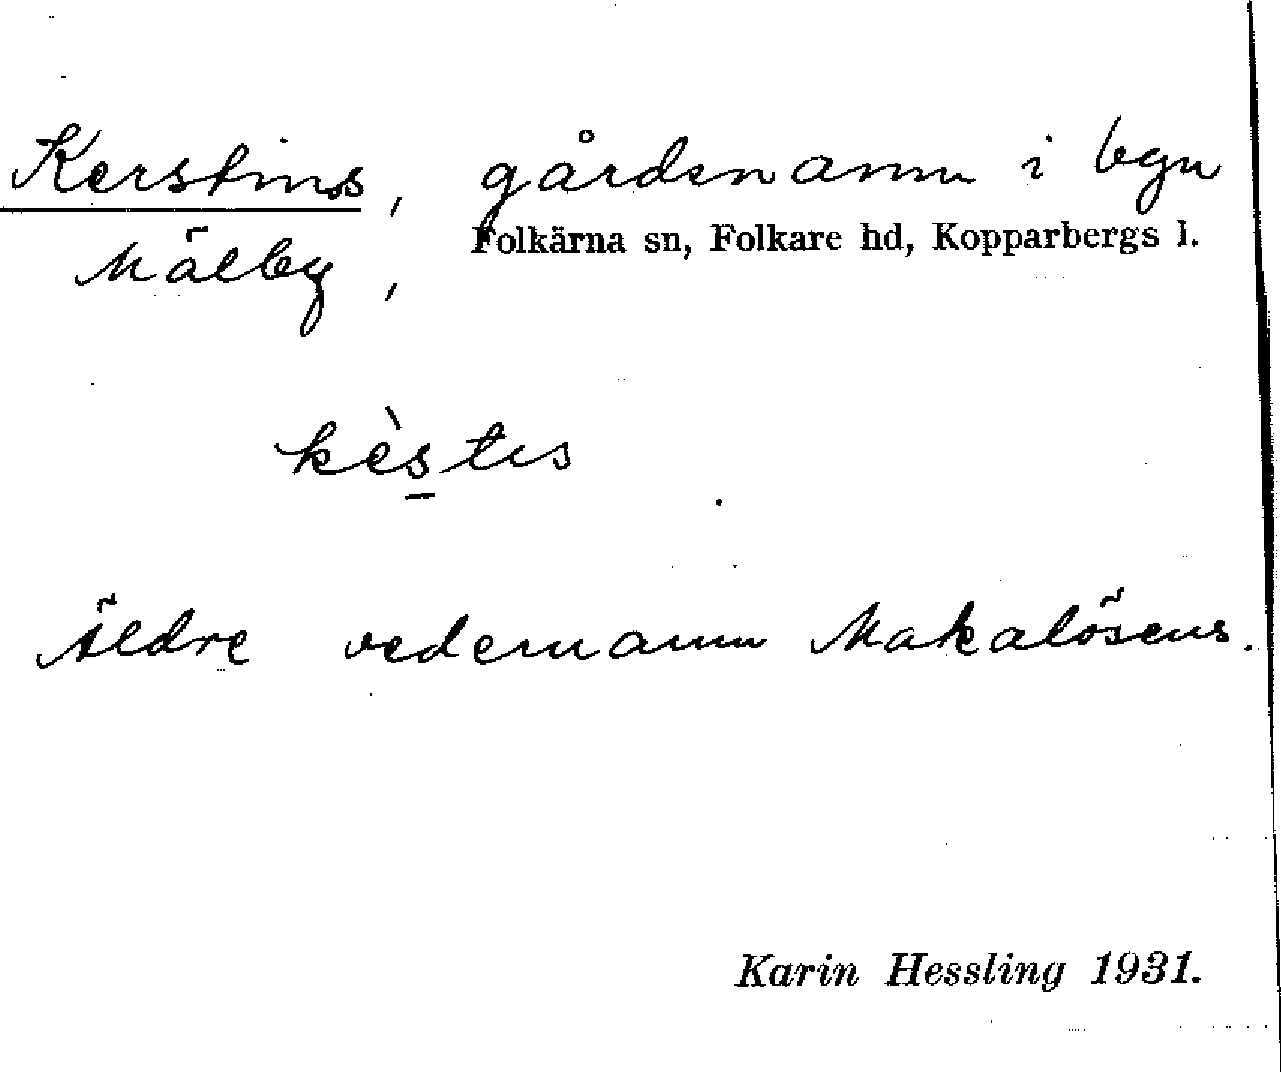 Kerstins, gårdsnamn i byn
Folkärna sn, Folkare hd, Kopparbergs l.
Mälby,
kèstis
Äldre vedernamn Makalösens.
Karin Hessling 1931.